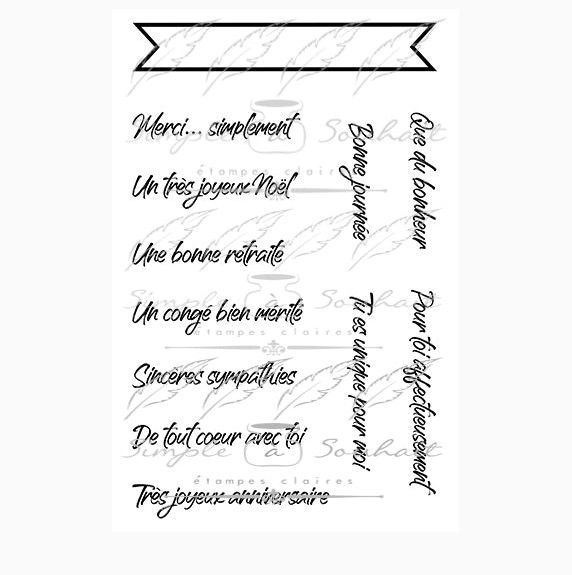 Merci... simplement
Un très joyeux Noël
Une bonne retraite
Un congé bien mérité
Sincères sympathies
De tout coeur avec toi
Très joyeux anniversaire
Bonne journée
Tu es unique pour moi
Que du bonheur
Pour toi affectueusement
Simple à Souhait
étampes claires
Simple à Souhait
étampes claires
Simple à Souhait
étampes claires